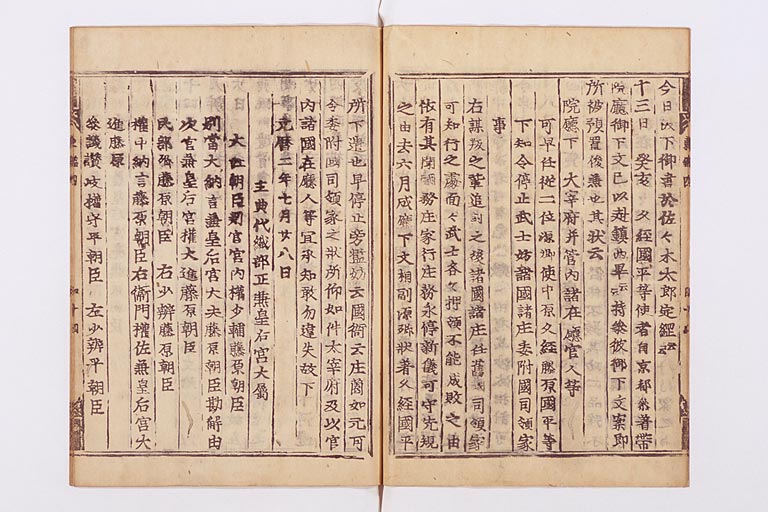 今日以下御書於佐々木太郎定経云云
十三日 癸亥 久経國平等使者自京都参著帯
院廳御下文已以赴鎮西畢云云持参彼御下文案即
所被預置後兼也其状云
院廳下 大宰府并管内諸在廳官人等
可早任従二位源卿使中原久経藤原國平等
下知令停止武士妨諸國諸庄委附國司領家
事
右謀叛之輩追討之後諸國諸庄任舊國司領家
可知行之處面々武士各々押領不能成敗之由
依有其聞
務庄家行庄務永停新儀可守先規
之由去六月成廳下文相副源卿状差久経國平
所下遣也早停止旁濫妨云國衙云庄薗如元可
令委附國司領家之状所仰如件太宰府及以官
内諸國在廳人等宜承知敢勿違失故下
元暦二年七月廿八日
主典代織部正兼皇后宮大属
大江朝臣判官宮内權少輔藤原朝臣
別當大納言兼皇后宮大夫藤原朝臣勘解由
次官兼皇后宮權大進藤原朝臣
民部卿藤原朝臣 右少辨藤原朝臣
權中納言藤原朝臣右衛門權佐兼皇后宮大
進藤原
参議讃岐權守平朝臣 左少辨平朝臣